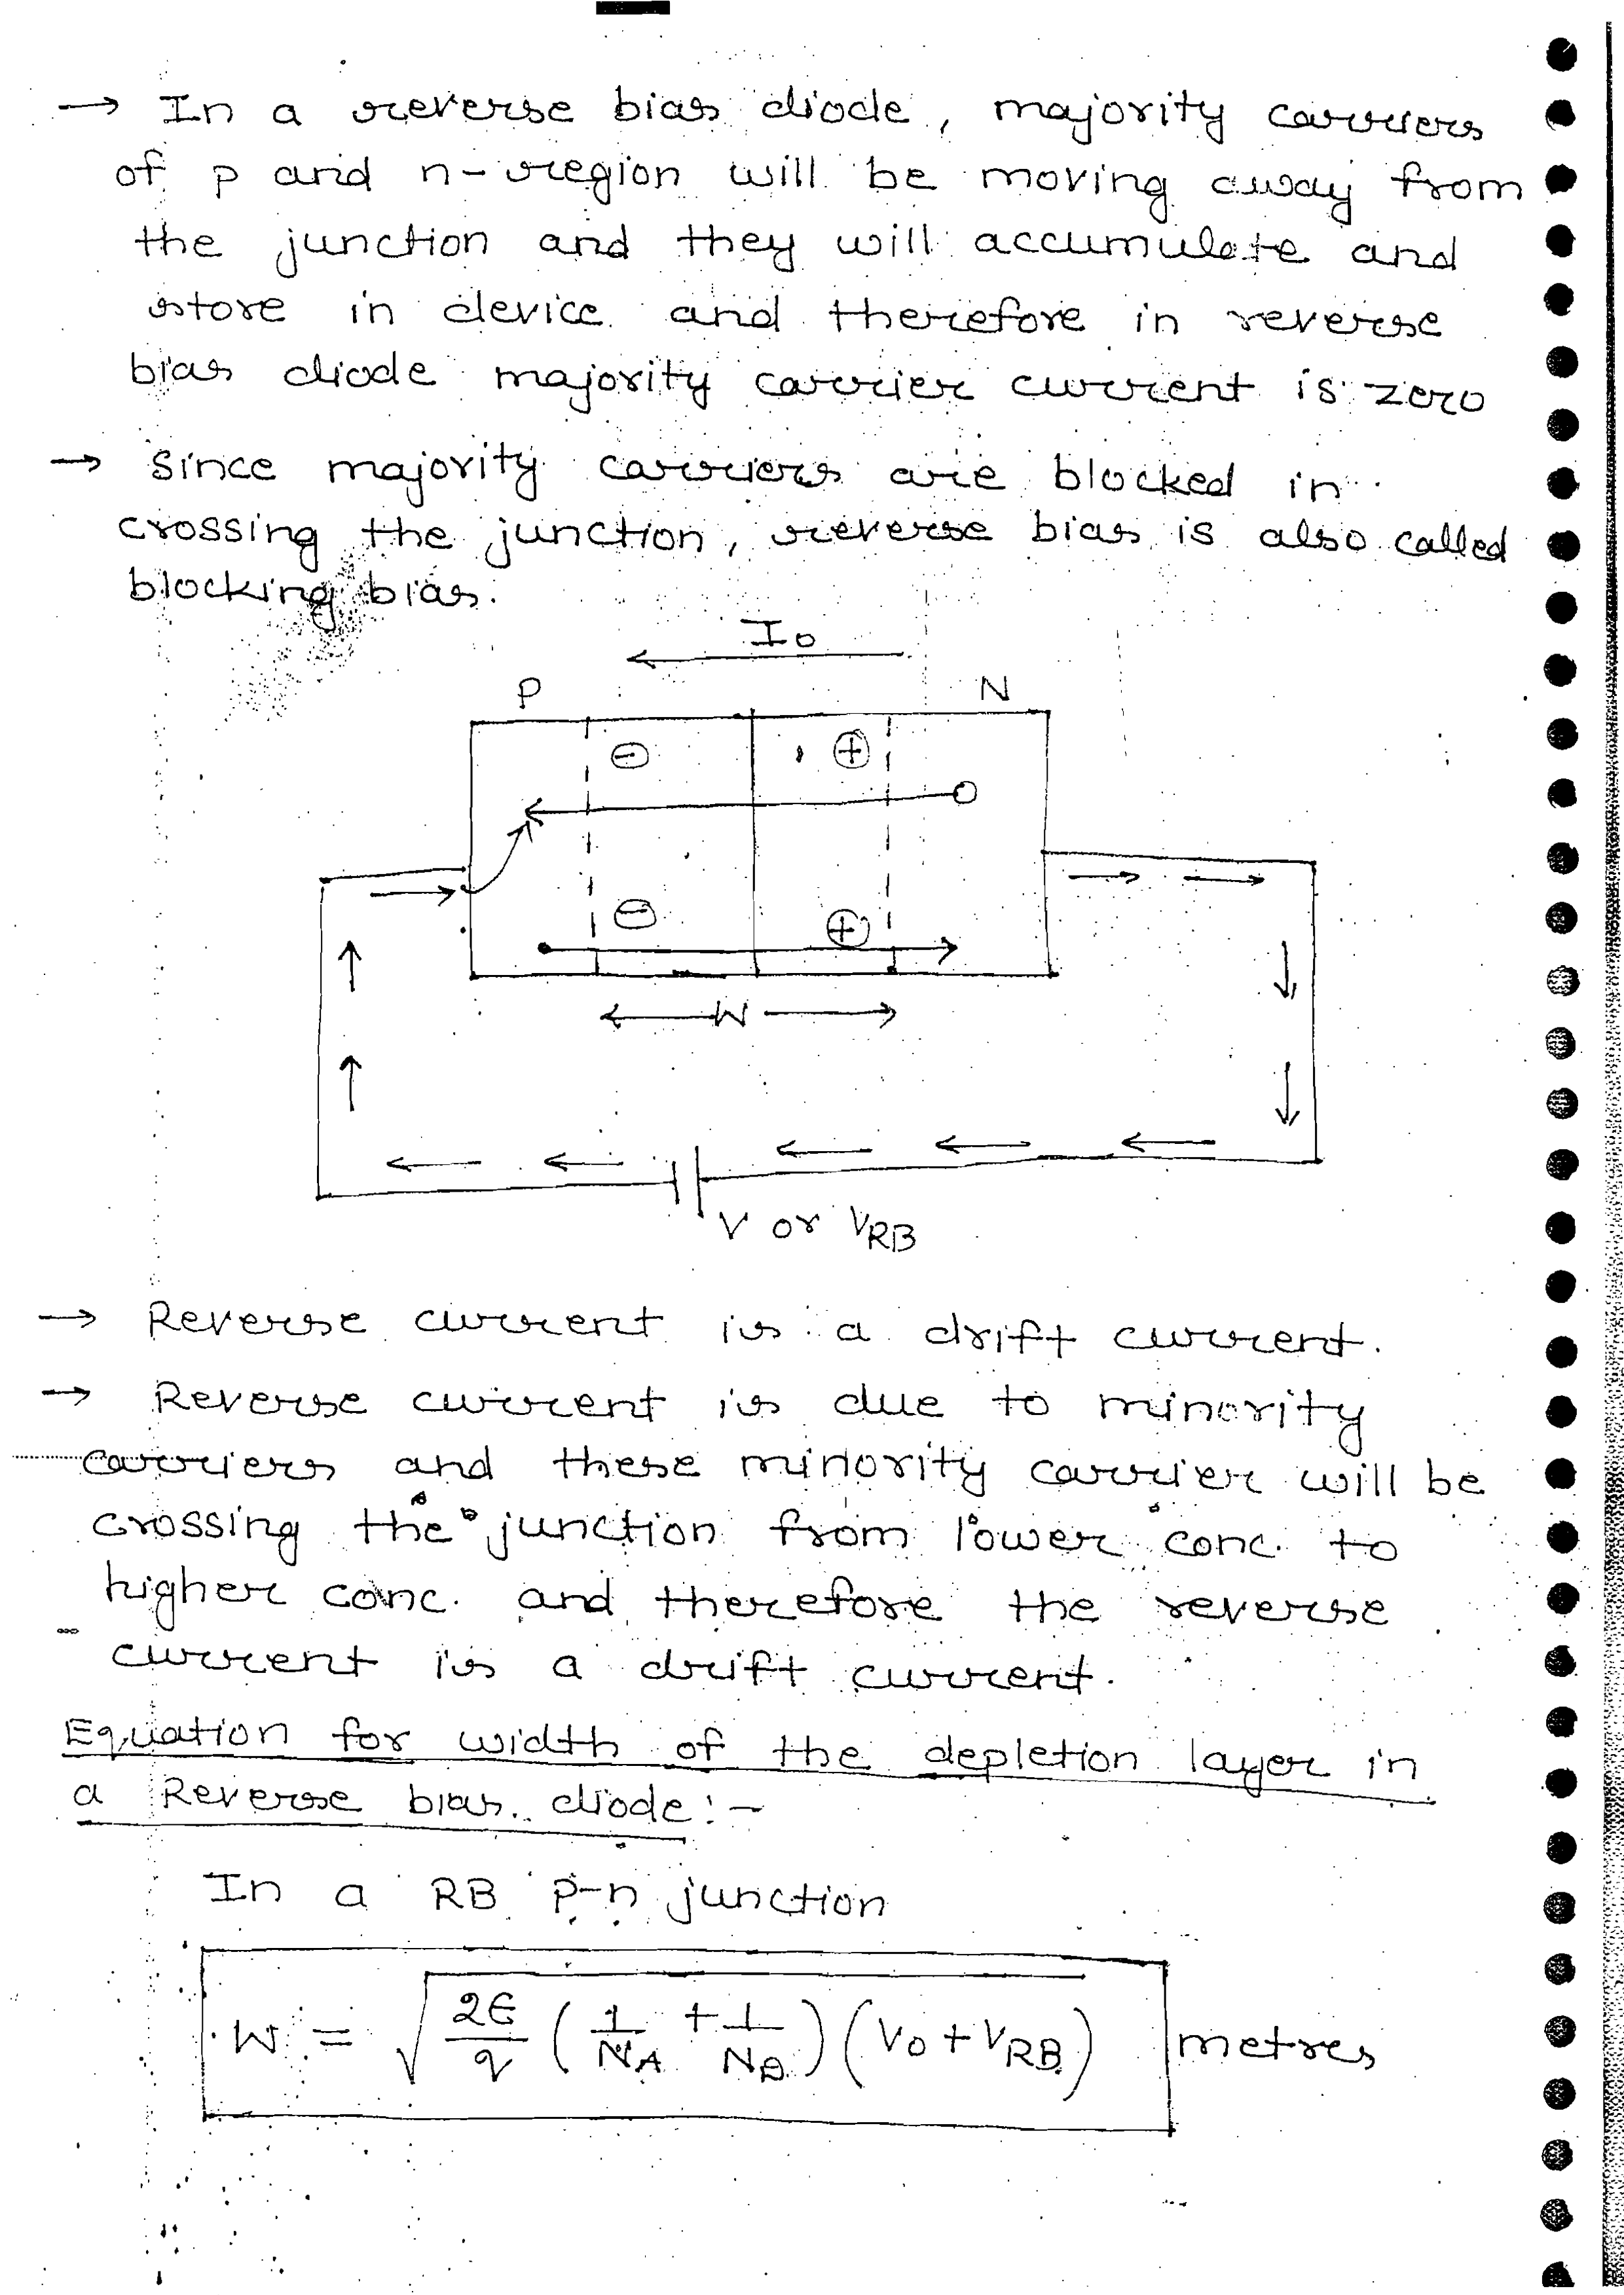 → In a reverse bias diode, majority carriers
of p and n-region will be moving away from
the junction and they will accumulate and
store in device and therefore in reverse
bias diode majority carrier current is zero
→ Since majority carriers are blocked in
crossing the junction, reverse bias is also called
blocking bias.
I0
P N
⊖ ⊕
⊖ ⊕
W
V or VRB
→ Reverse current is a drift current.
→ Reverse current is due to minority
carriers and these minority carrier will be
crossing the junction from lower conc. to
higher conc. and therefore the reverse
current is a drift current.
Equation for width of the depletion layer in
a Reverse bias diode:-
In a RB p-n junction
W = √(2ε/q (1/NA + 1/ND)(V0 + VRB)) metres